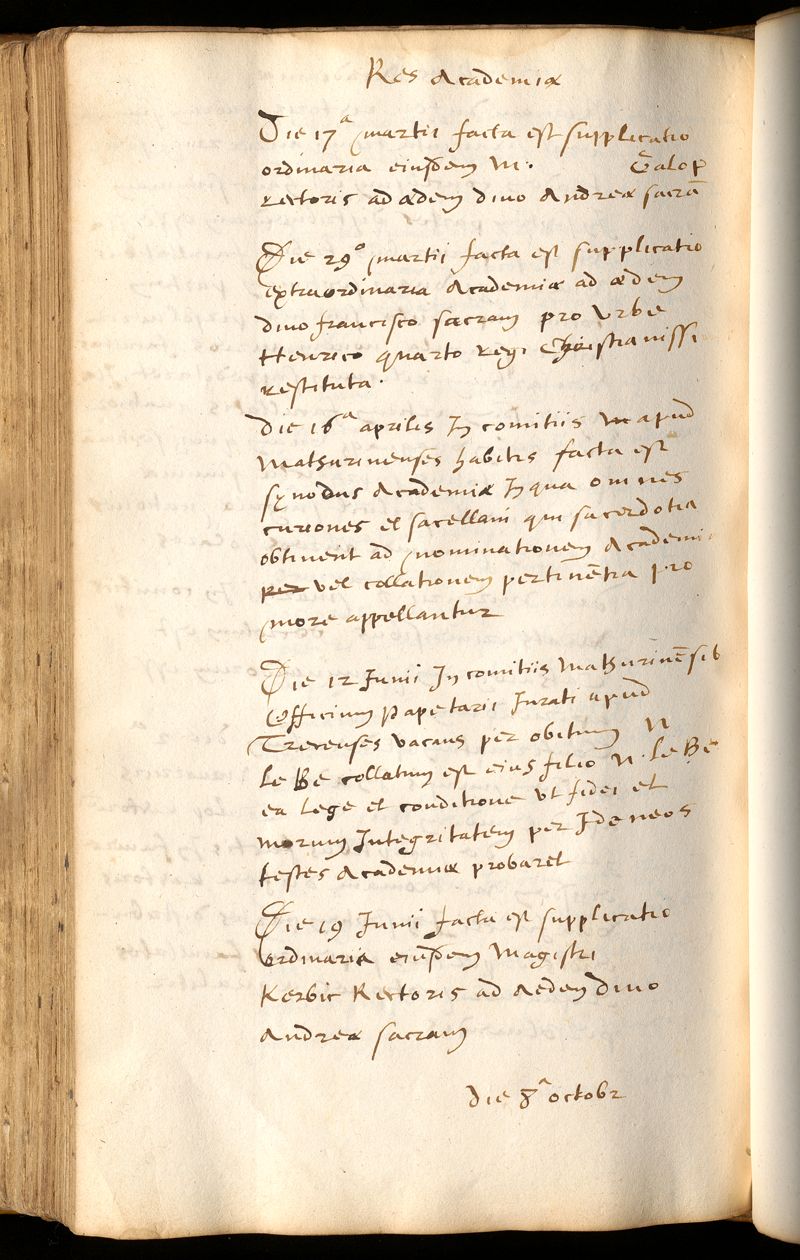 Res Academiæ
Die 17ª martii facta est supplicatio
ordinaria eiusdem M. Galop
Rectoris ad ædem divo Andreæ sacrā
Die 29º martii facta est supplicatio
extraordinaria Academiæ ad ædem
divo francisco sacram pro Urbe
Henrico quarto regi Christianissi
restituta.
Die 16ª aprilis In comitiis apud
Mathurinenses habitis facta est
synodus Academiæ In qua omnes
curiones et sacellani qui sacerdotia
obtinent ad nominationem Academi
per vel collationem pertinētia pro
more appellantur
Die 12 Junii In comitiis Mathurinēsib
Officium Papetarii Jurati apud
Trecenses vacans per obitum N
Le Be collatum est eius filio N. Le Be
ea lege et conditione ut fidei et
morum Integritatem per Idoneos
testes Academiæ probaret
Die 19 Junii facta est supplicatio
ordinaria eiusdem Magistri
Kerbic Rectoris ad Aedem divo
Andreæ sacram
die 8ª octobr